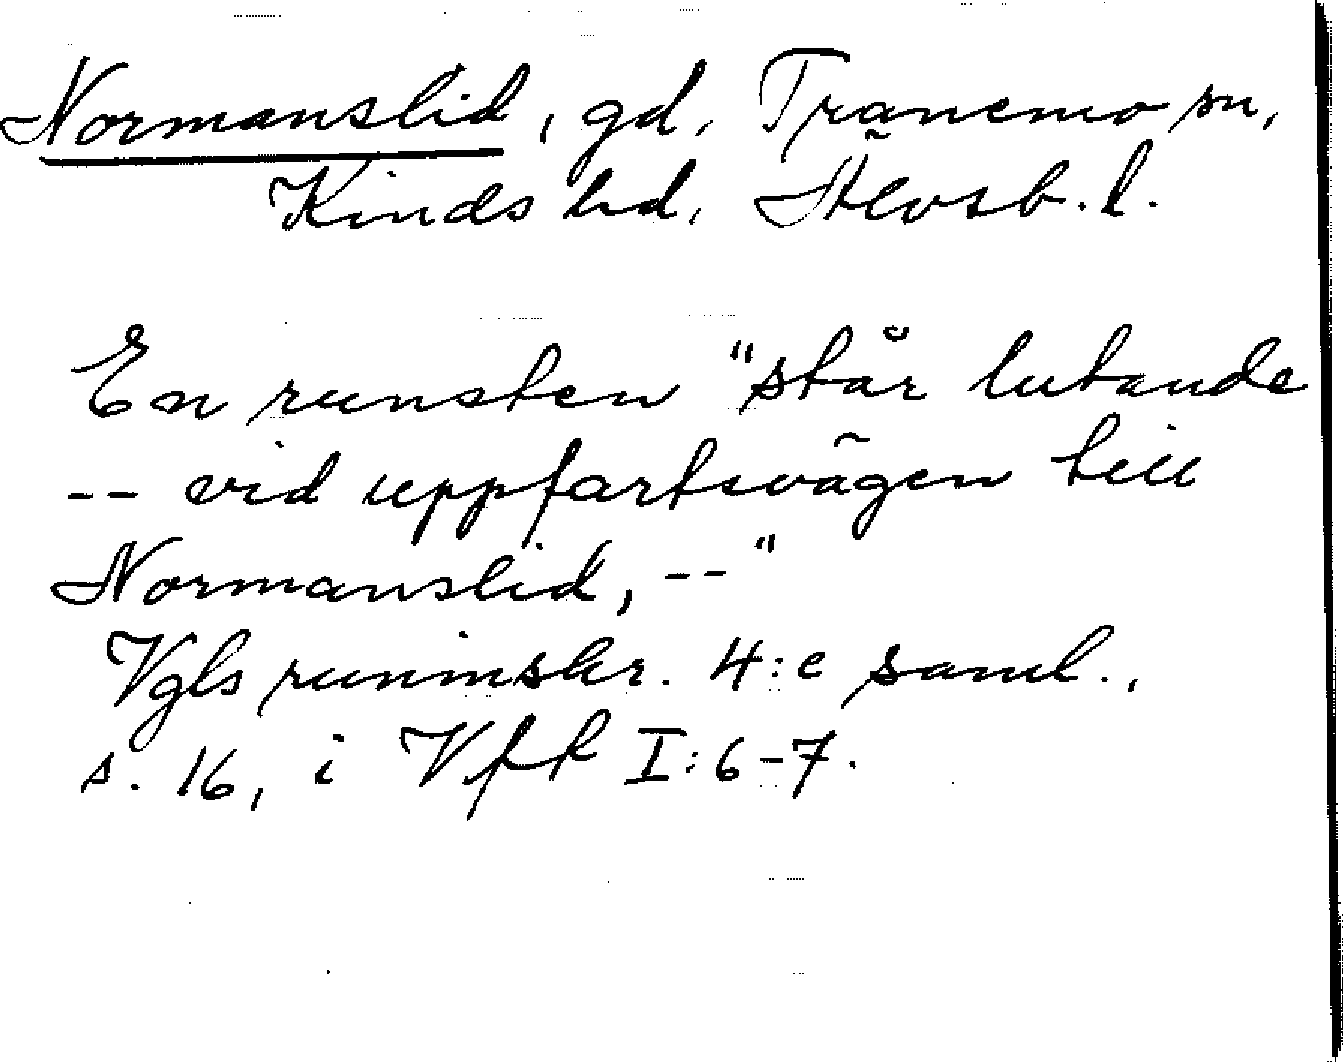 Normanslid, gd, Tranemo sn,
Kinds hd, Älvsb. l.
En runsten "står lutande
-- vid uppfartsvägen till
Normanslid, --"
Vgls runinskr. 4:e saml.,
s. 16, i Vff I:6-7.